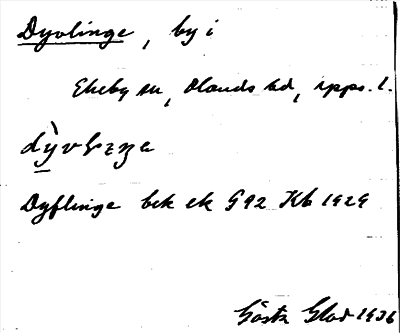 Dyvlinge, by i
Ekeby sn, Olands hd, Upps. l.
Dyflinge bek ek 592 Kb 1929
Gösta Glad 1936